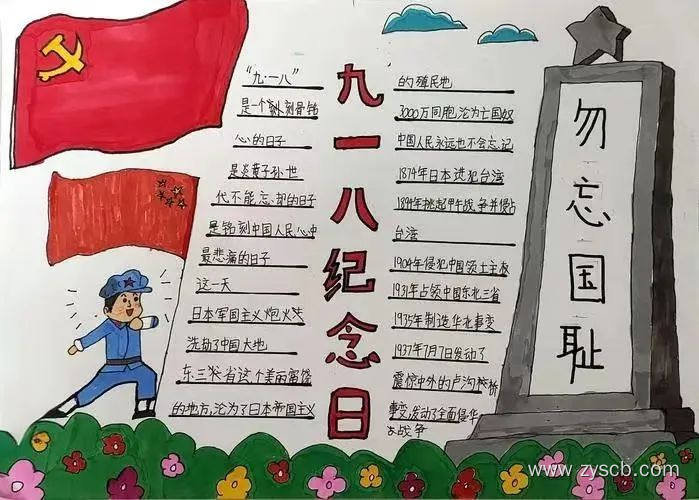 九一八纪念日
"九·一八"
是一个刻骨铭
心的日子
是炎黄子孙世
代不能忘却的日子
是铭刻中国人民心中
最悲痛的日子
这一天
日本军国主义炮火
洗劫了中国大地
东三省这个美丽富饶
的地方,沦为了日本帝国主义
的殖民地
3000万同胞沦为亡国奴
中国人民永远也不会忘记
1874年日本进犯台湾
1894年挑起甲午战争并侵占
台湾
1904年侵犯中国领土主权
1931年占领中国东北三省
1935年制造华北事变
1937年7月7日发动了
震惊中外的卢沟桥
事变,发动了全面侵华
战争
勿忘国耻
www.zyscb.com